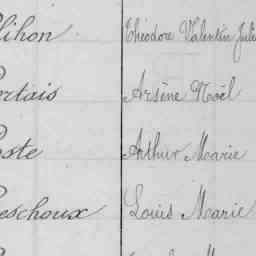 lihon Théodore Valentin Jule
ortais Arsène Noël
oste Arthur Marie
eschoux Louis Marie